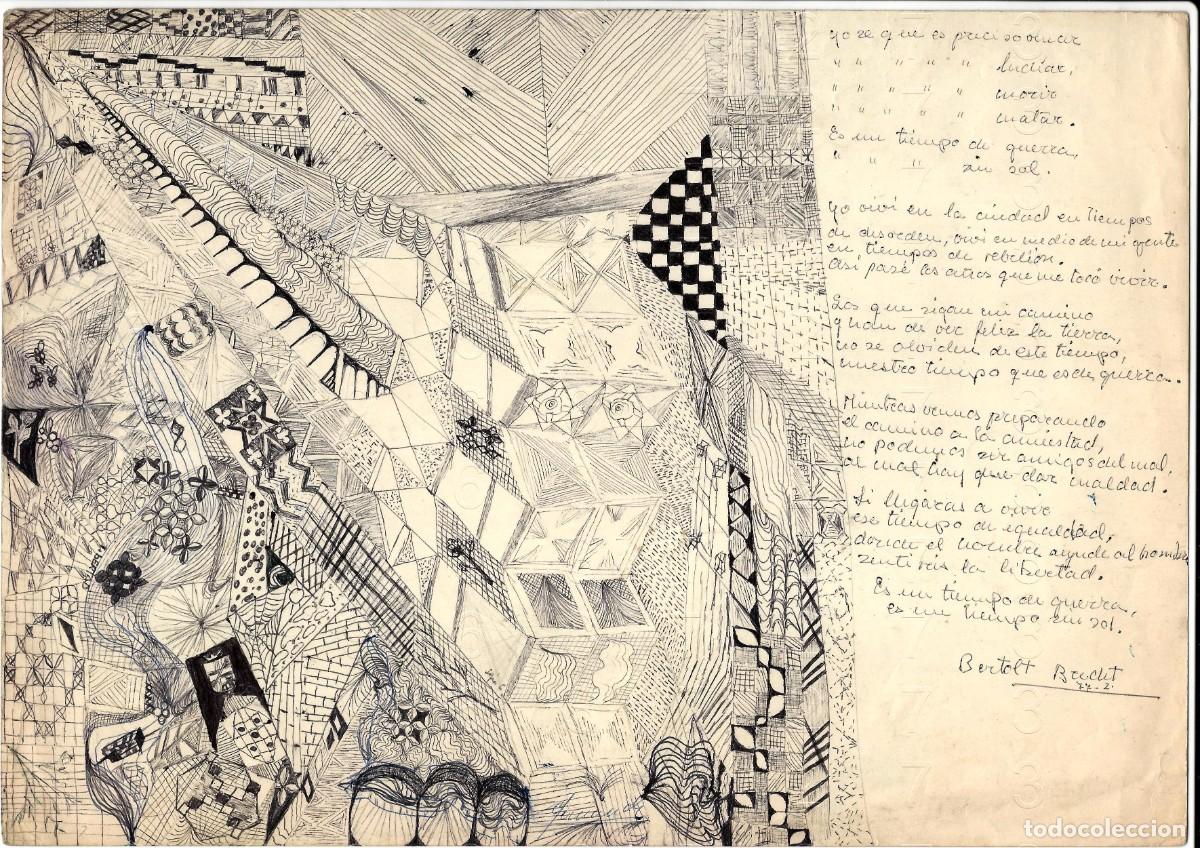 yo se que es preciso amar
" " " " " luchar,
" " " " " morir
" " " " " matar.
Es un tiempo de guerra,
" " " sin sol.
Yo viví en la ciudad en tiempos
de desorden, viví en medio de mi gente
en tiempos de rebelión.
Así pasé los años que me tocó vivir.
Los que sigan mi camino
y han de ver feliz la tierra,
no se olviden de este tiempo,
nuestro tiempo que es de guerra.
Mientras vamos preparando
el camino a la amistad,
no podemos ser amigos del mal.
al mal hay que dar maldad.
Si llegaras a vivir
ese tiempo de igualdad,
donde el hombre ayude al hombre,
sentiras la libertad.
Es un tiempo de guerra,
es un tiempo sin sol.
Bertolt Brecht
todocoleccion